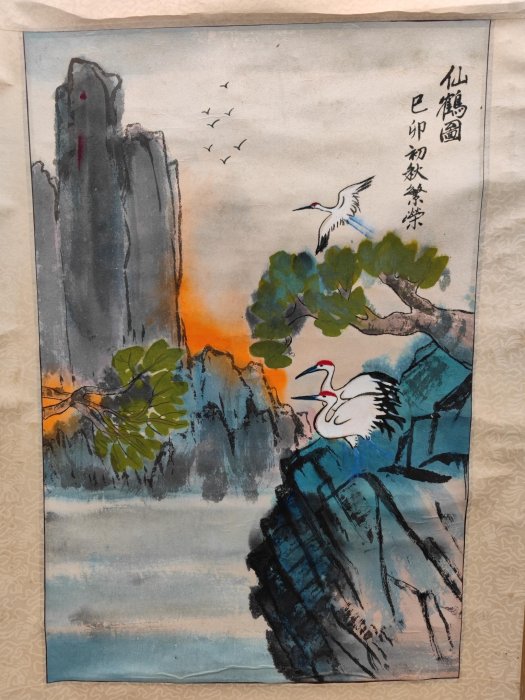 仙鶴圖
己卯初秋繁榮